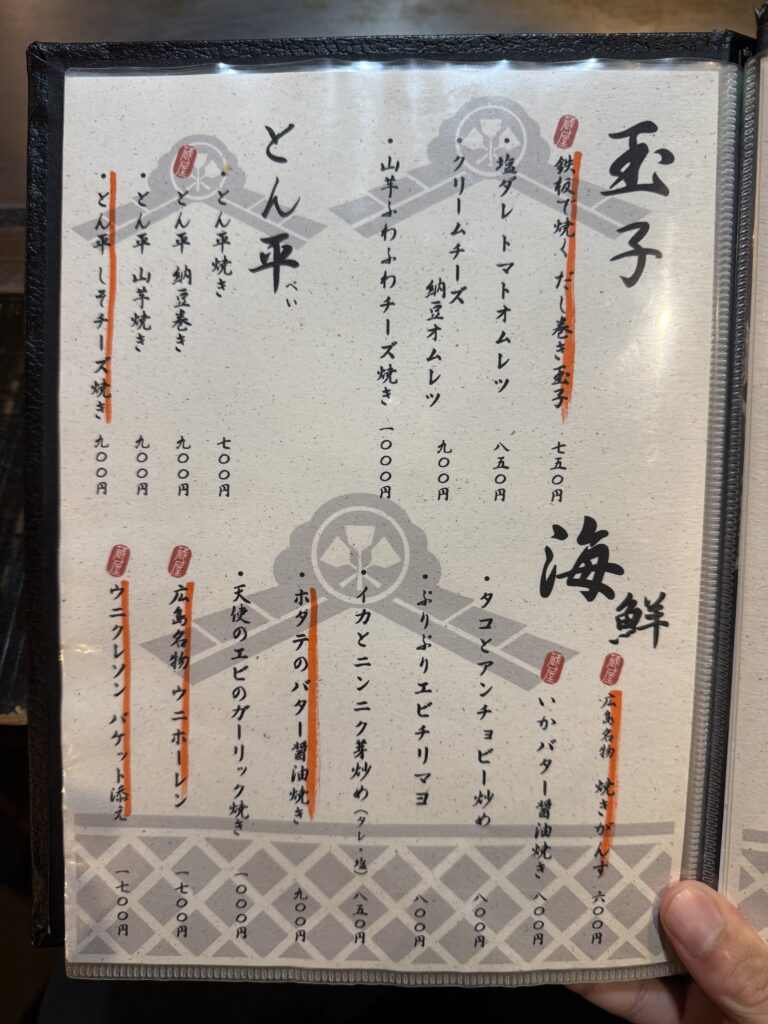 玉子
蔵屋
鉄板で焼く だし巻き玉子 七五〇円
・塩ダレ トマトオムレツ 八五〇円
・クリームチーズ
納豆オムレツ 九〇〇円
・山芋ふわふわチーズ焼き 一〇〇〇円
とん平
ぺい
・とん平焼き 七〇〇円
蔵屋
とん平 納豆巻き 九〇〇円
・とん平 山芋焼き 九〇〇円
・とん平 しそチーズ焼き 九〇〇円
海鮮
蔵屋
広島名物 焼きがんす 六〇〇円
蔵屋
いかバター醤油焼き 八〇〇円
・タコとアンチョビー炒め 八〇〇円
・ぷりぷりエビチリマヨ 八〇〇円
・イカとニンニク芽炒め(タレ・塩) 八五〇円
・ホタテのバター醤油焼き 九〇〇円
・天使のエビのガーリック焼き 一〇〇〇円
蔵屋
広島名物 ウニホーレン 一七〇〇円
蔵屋
ウニクレソン バケット添え 一七〇〇円